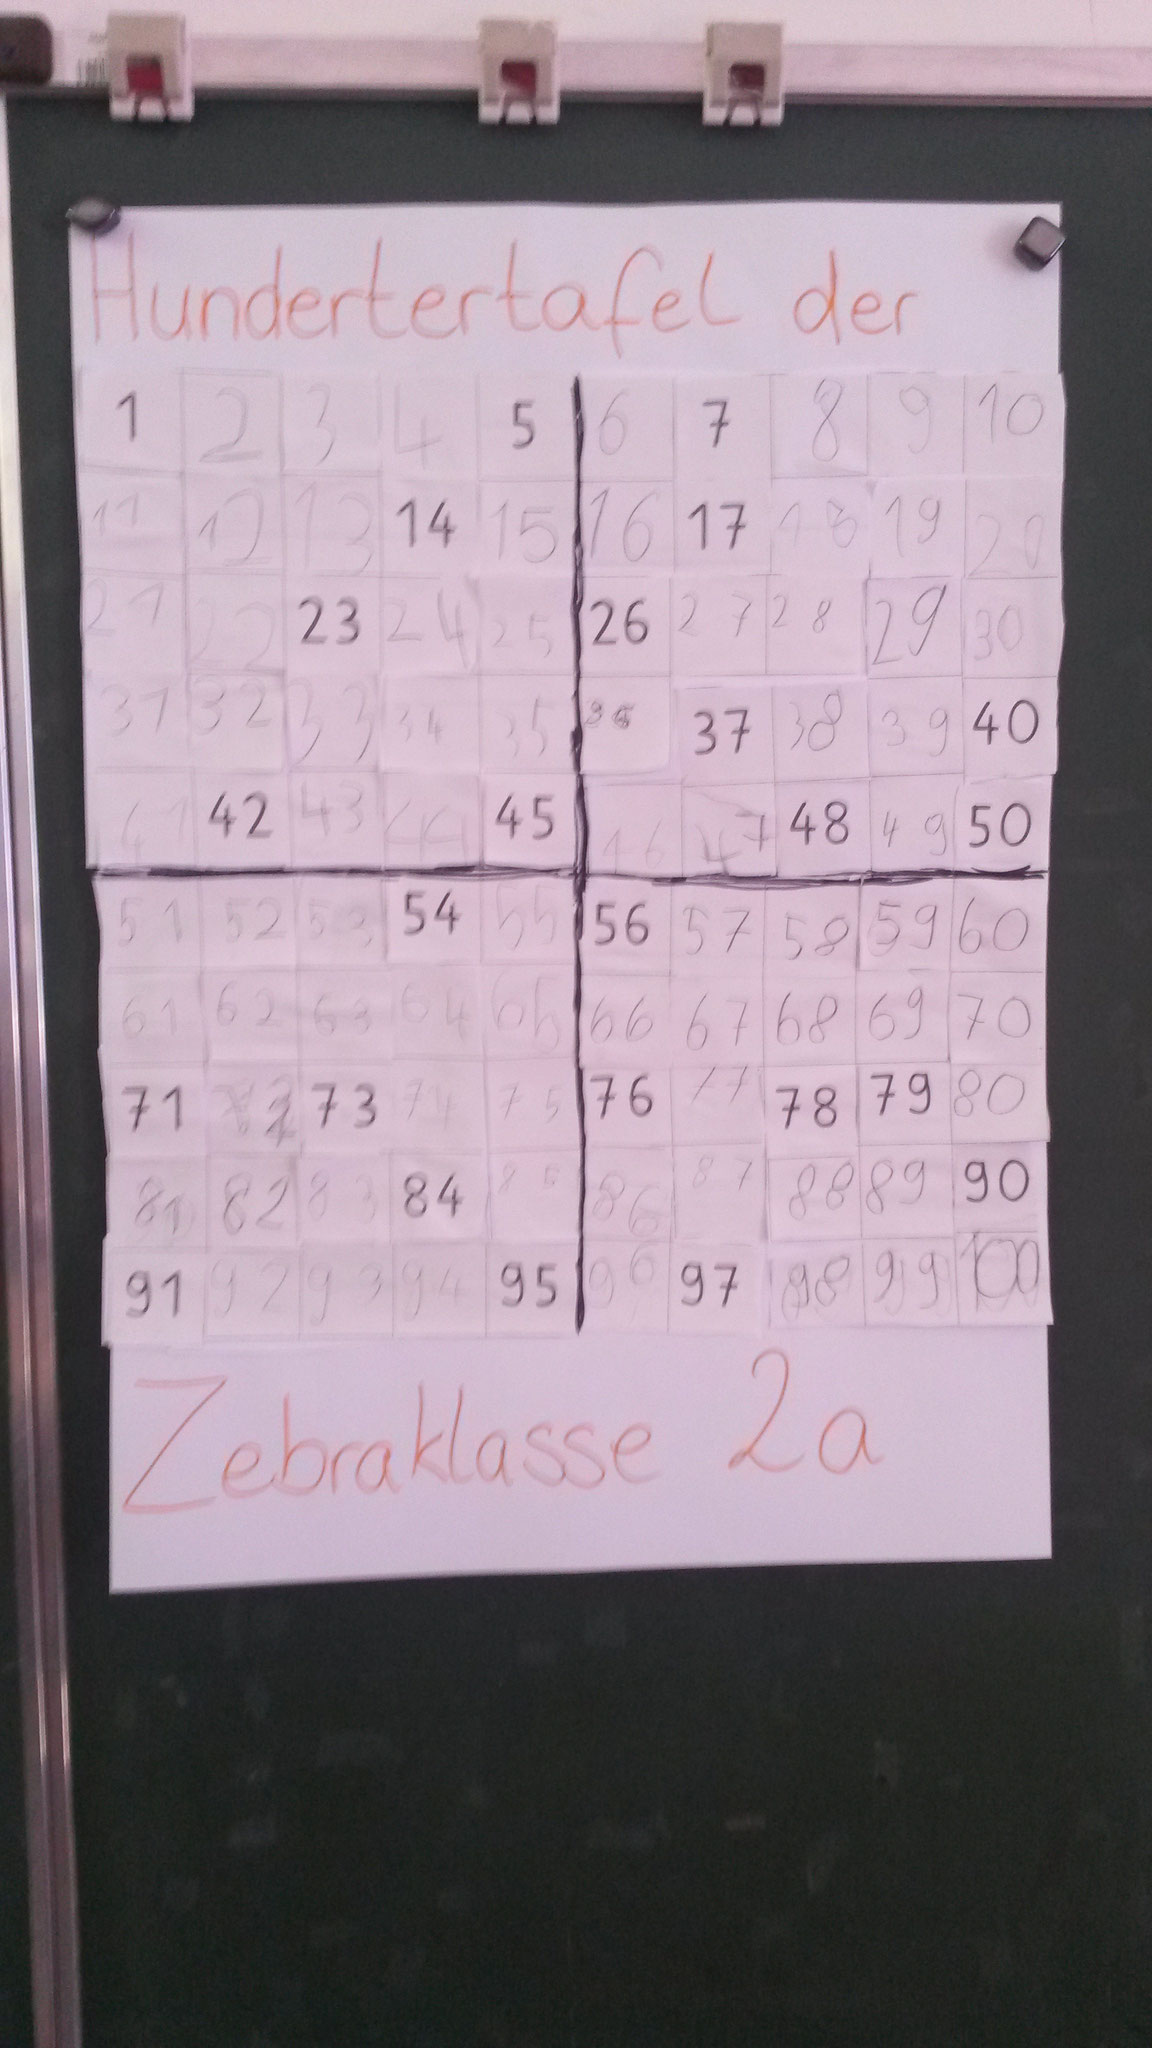 Hundertertafel der
1 2 3 4 5 6 7 8 9 10
11 12 13 14 15 16 17 18 19 20
21 22 23 24 25 26 27 28 29 30
31 32 33 34 35 36 37 38 39 40
41 42 43 44 45 46 47 48 49 50
51 52 53 54 55 56 57 58 59 60
61 62 63 64 65 66 67 68 69 70
71 72 73 74 75 76 77 78 79 80
81 82 83 84 85 86 87 88 89 90
91 92 93 94 95 96 97 98 99 100
Zebraklasse 2a